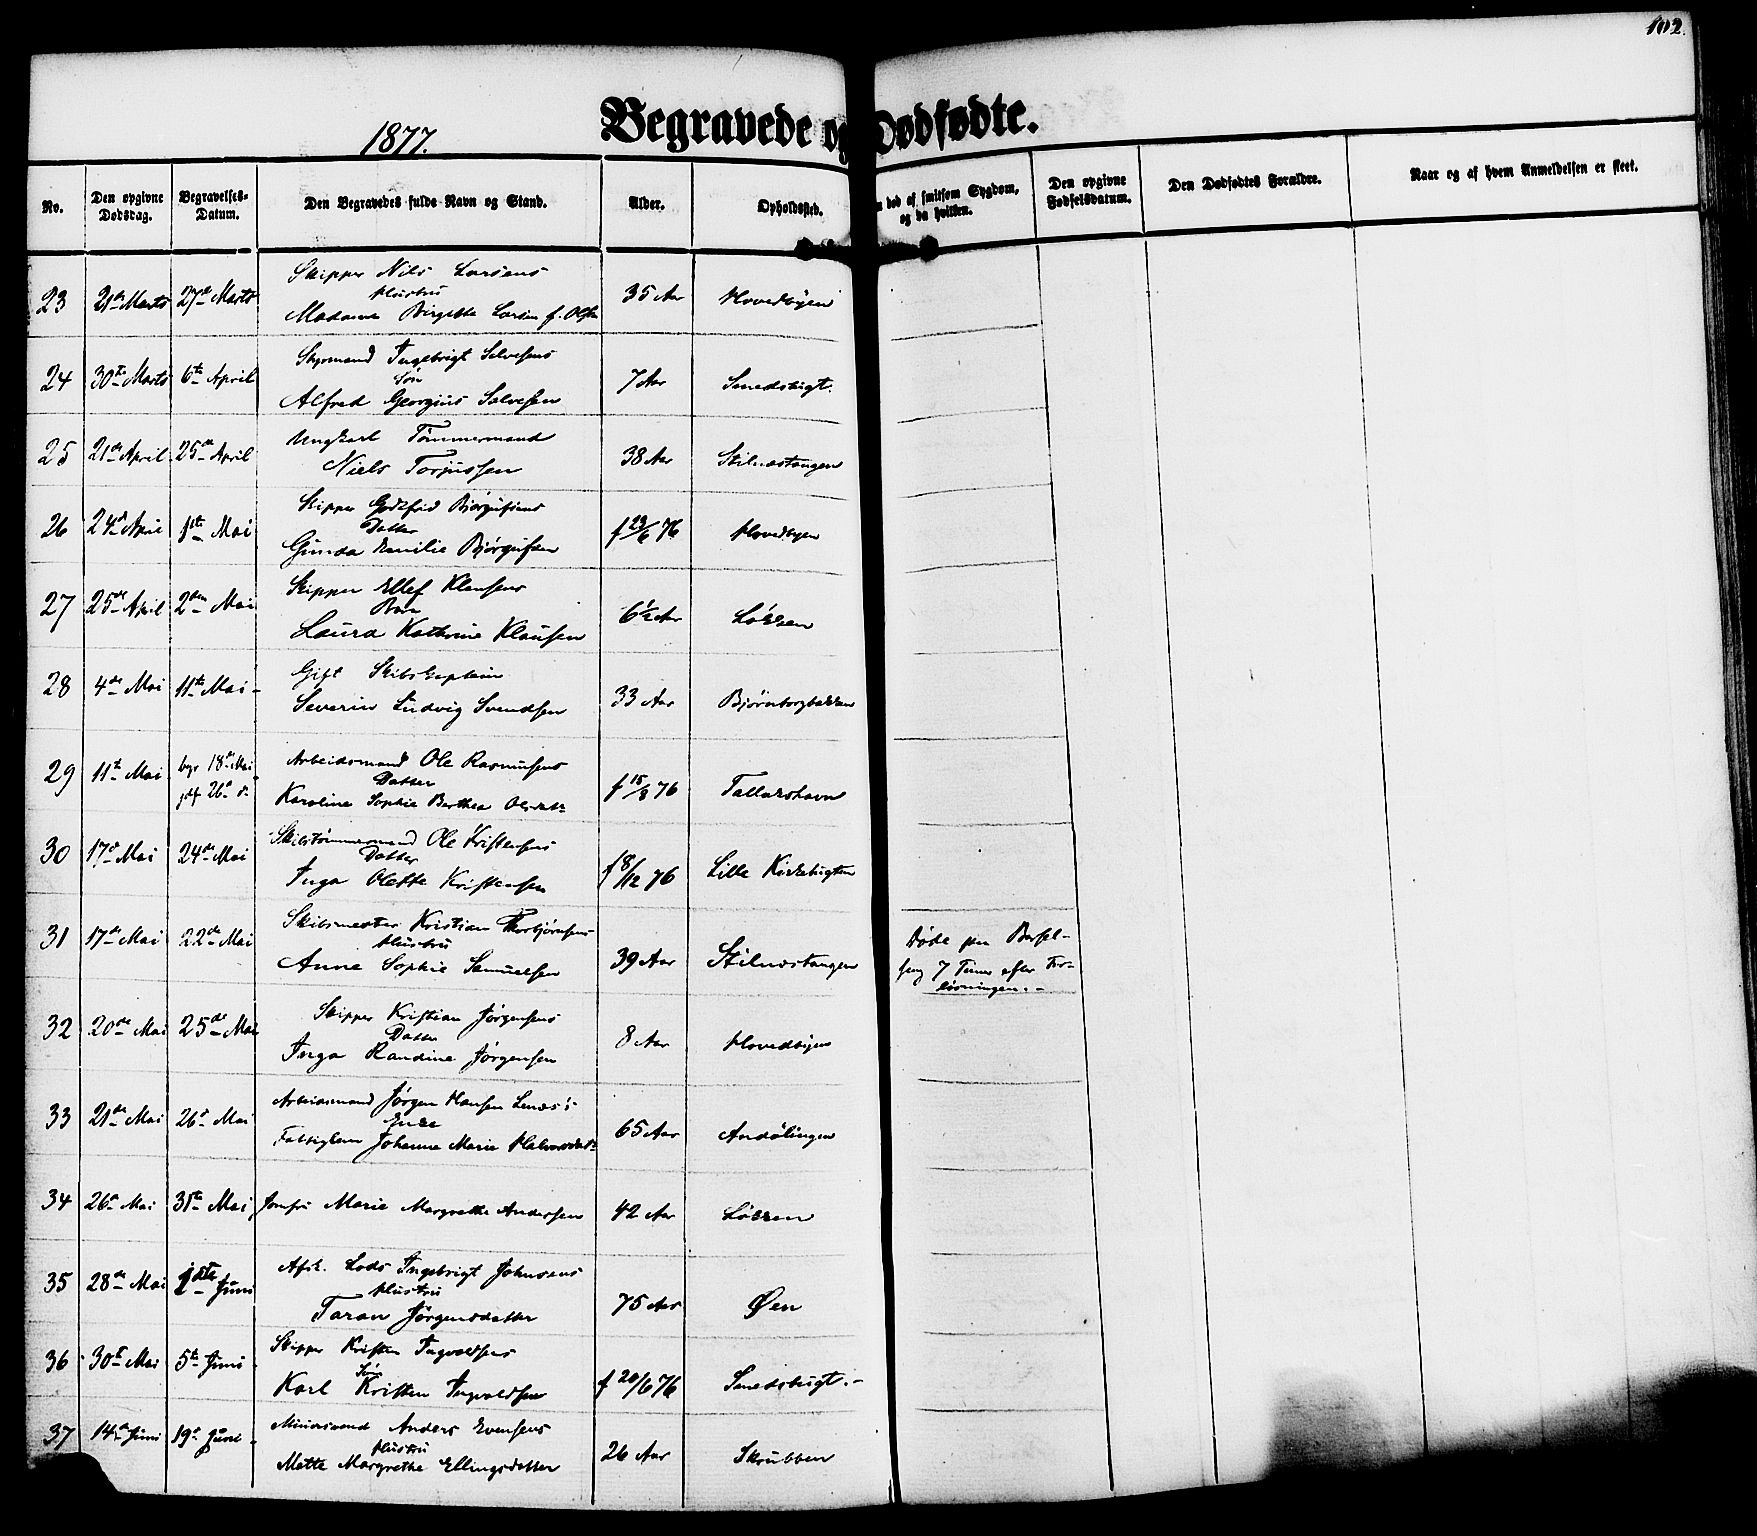 102.
1877.
Begravede og Dødfødte.
No. Den opgivne Dødsdag. Begravelses-Datum. Den Begravedes fulde Navn og Stand. Alder. Opholdssted. død af smitsom Sygdom, og da hvilken. Den opgivne Fødselsdatum. Den Dødfødtes Forældre. Naar og af hvem Anmeldelsen er skeet.
Skipper Nils Larsens
Hustru
23 21de Marts 27de Marts Madame Birgitte Larsen f. Olsen 35 Aar Hovedbyen
Styrmand Ingebrigt Salvesens
Søn
24 30te Marts 6te April Alfred Georgius Salvesen 7 Aar Smedsbugt.
Ungkarl Tømmermand
25 21de April 25de April Niels Torjussen 38 Aar Stilnæstangen
Skipper Godtfred Bjørgufsens
Datter
26 24de April 1ste Mai Gunda Emilie Bjørgufsen f 23/6 76 Hovedbyen
Skipper Ellef Klausens
Barn
27 25de April 2den Mai Laura Kathrine Klausen 6½ Aar Løkken
Gift Skibskaptein
28 4de Mai 11te Mai Severin Ludvig Svendsen 33 Aar Bjørneborgbakken
Arbeidsmand Ole Rasmusens
Datter
29 11te Mai bgr 18de Mai jdf 26de d. Karoline Sophie Berthea Olsdatr f 15/8 76 Tallakshavn
Skibstømmermand Ole Kristensens
Datter
30 17de Mai 24de Mai Inga Olette Kristensen f 8/12 76 Lille Kirkebugten
Skibsmester Kristian Thorbjørnsens
Hustru
31 17de Mai 22de Mai Anne Sophie Samuelsen 39 Aar Stilnæstangen
Døde paa Barsel-
seng 7 Timer efter For-
løsningen.
Skipper Kristian Jørgensens
Datter
32 20de Mai 25de Mai Inga Randine Jørgensen 8 Aar Hovedbyen
Arbeidsmand Jørgen Hansen Lenæs's
Enke
33 21de Mai 26de Mai Fattiglem Johanne Marie Halvorsdatr 65 Aar Andølingen
34 26de Mai 31te Mai Jomfru Marie Margrethe Andersen 42 Aar Løkken
Afsk. Lods Ingebrigt Johnsens
Hustru
35 28de Mai 1ste Juni Taran Jørgensdatter 75 Aar Øen
Skipper Kristen Ingvaldsens
Søn
36 30te Mai 5te Juni Karl Kristen Ingvaldsen f 20/6 76 Smedsbugt.
Minørsvend Anders Evensens
Hustru
37 14de Juni 19de Juni Mette Margrethe Ellingsdatter 26 Aar Skrubben